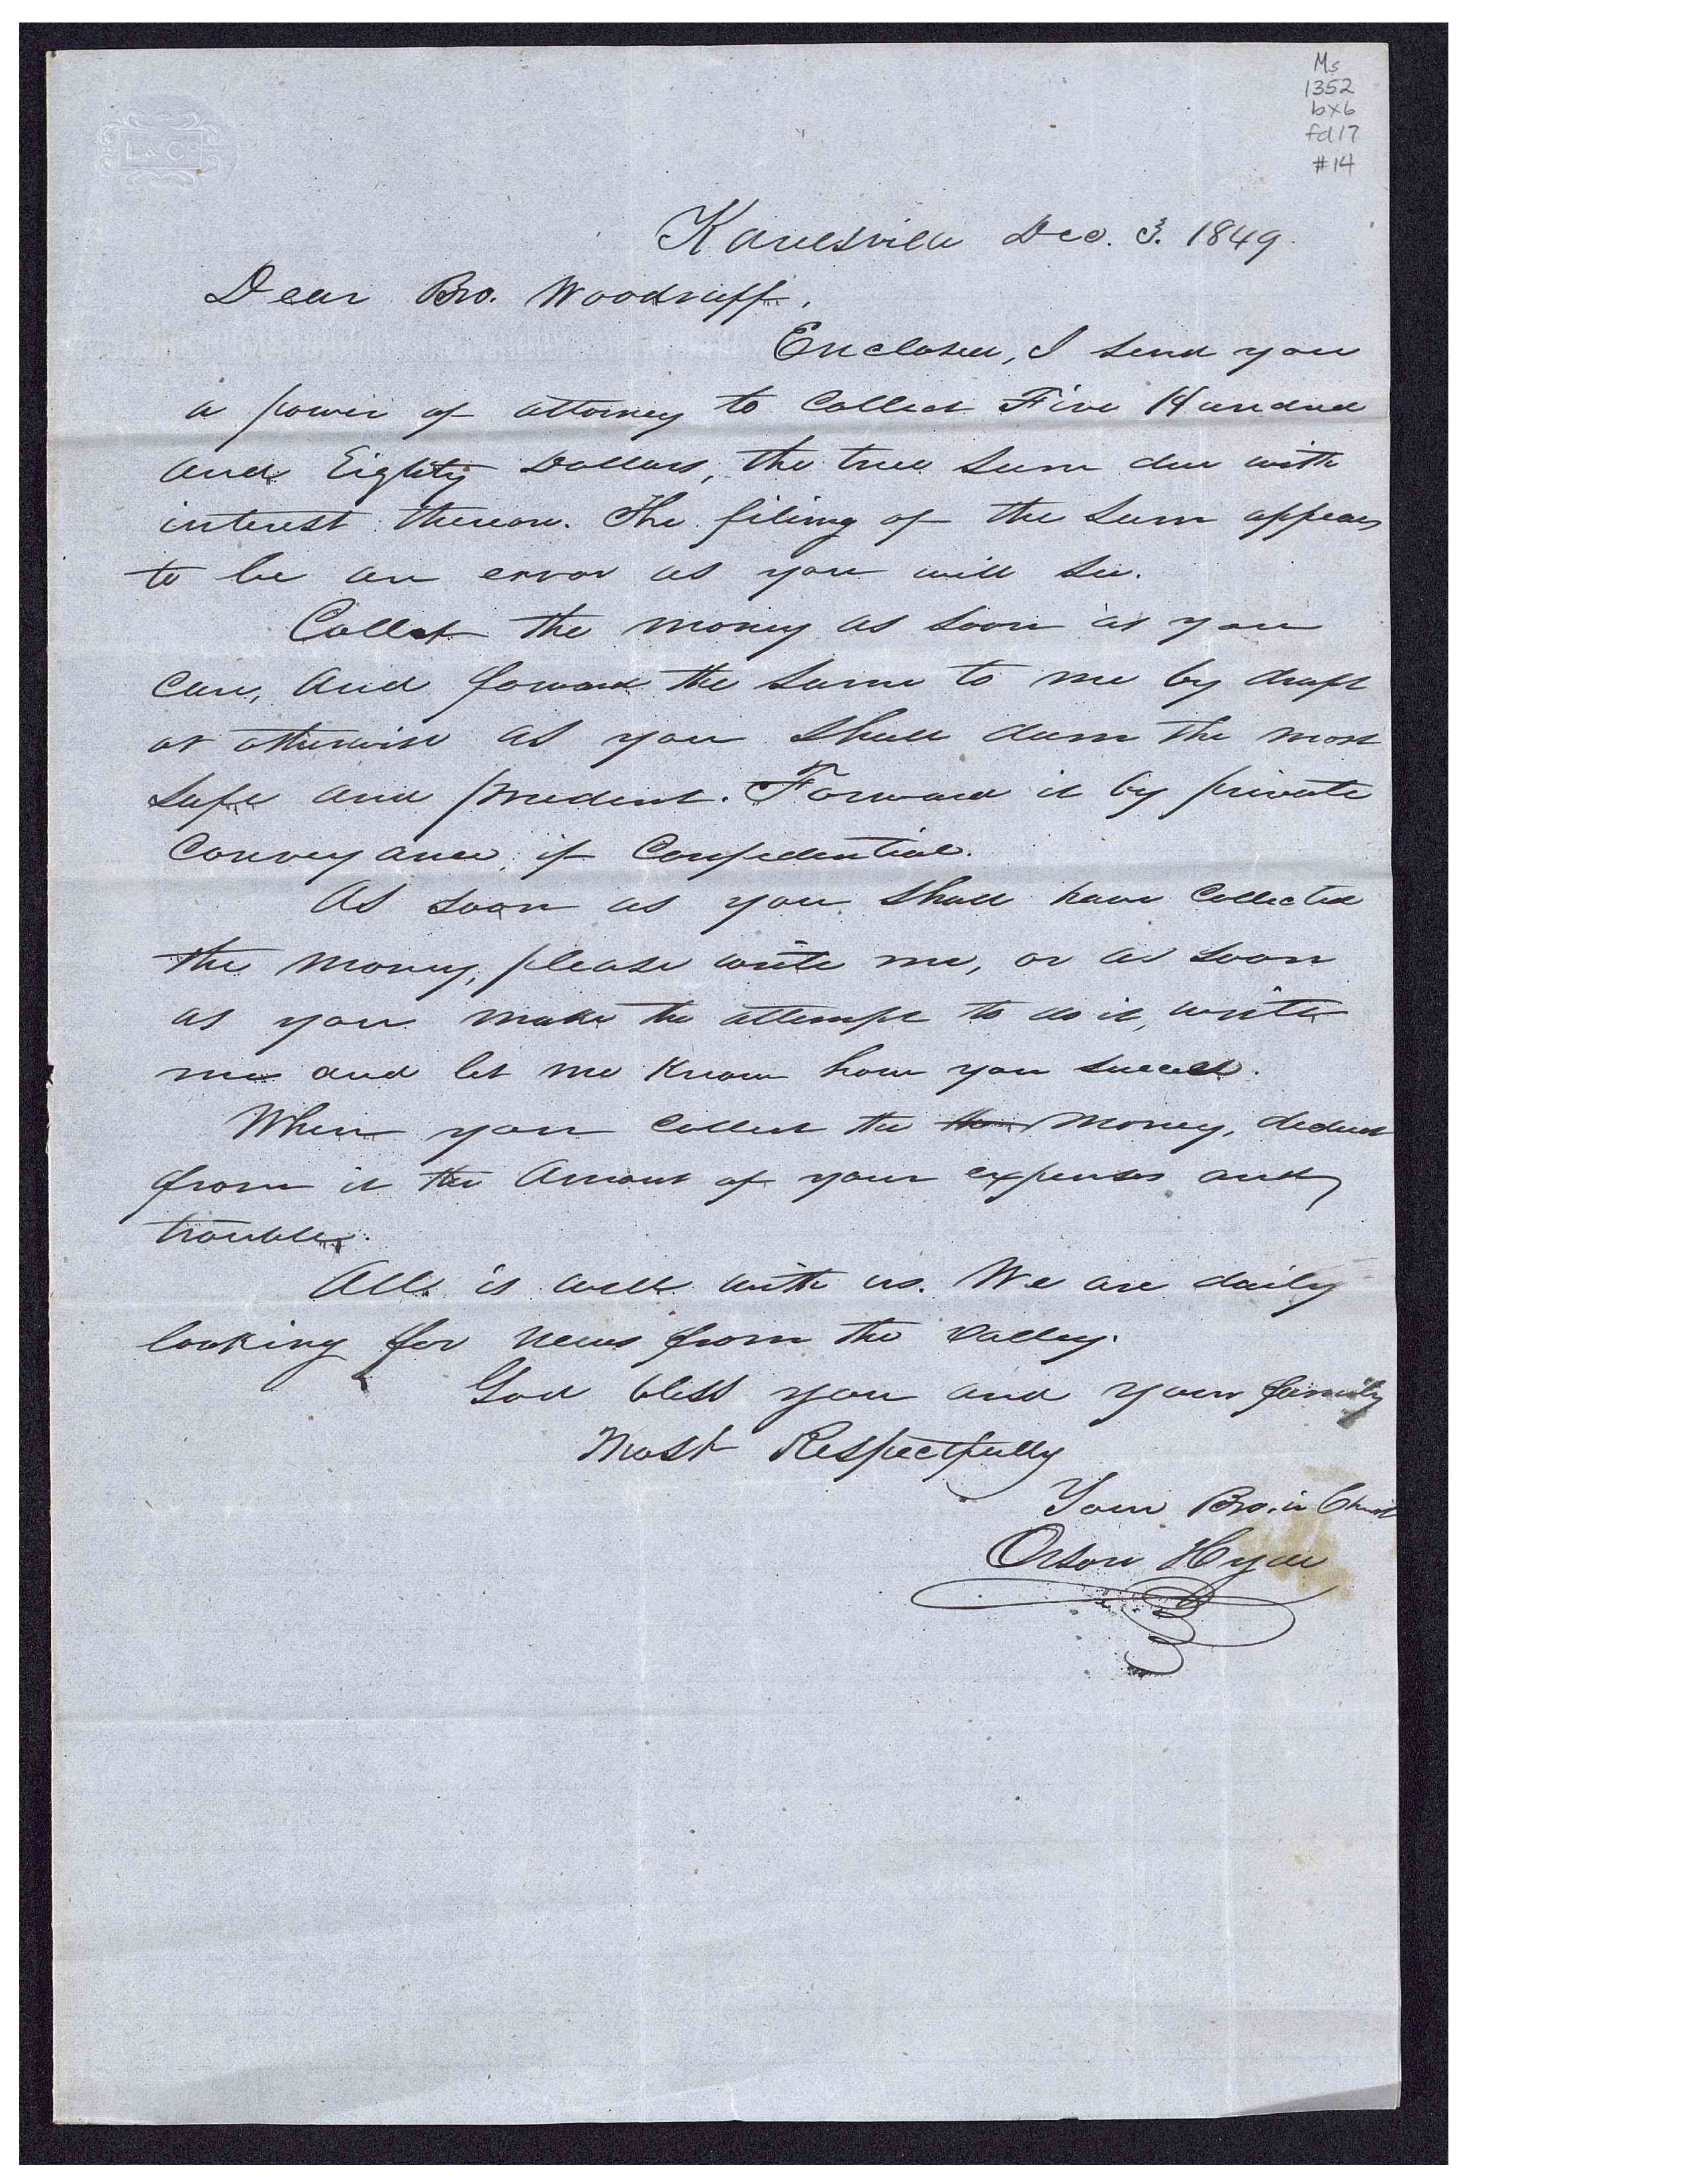 Ms
1352
bx6
fd17
#14
L & Co
Kanesville Dec. 3. 1849.
Dear Bro. Woodruff,
Enclosed, I send you
a power of attorney to Collect Five Hundred
and Eighty Dollars, the true sum due with
interest thereon. The filing of the sum appears
to be an error as you will see.
Collect the money as soon as you
can, and forward the same to me by draft
or otherwise as you shall deem the most
safe and prudent. Forward it by private
Conveyance, if Confidential.
As soon as you shall have Collected
the money, please write me, or as soon
as you make the attempt to do it, write
me and let me know how you succeed.
When you collect the money, deduct
from it the Amount of your expenses and
trouble.
All is well with us. We are daily
looking for news from the valley.
God bless you and your family
Most Respectfully
Your Bro. in Christ
Orson Hyde